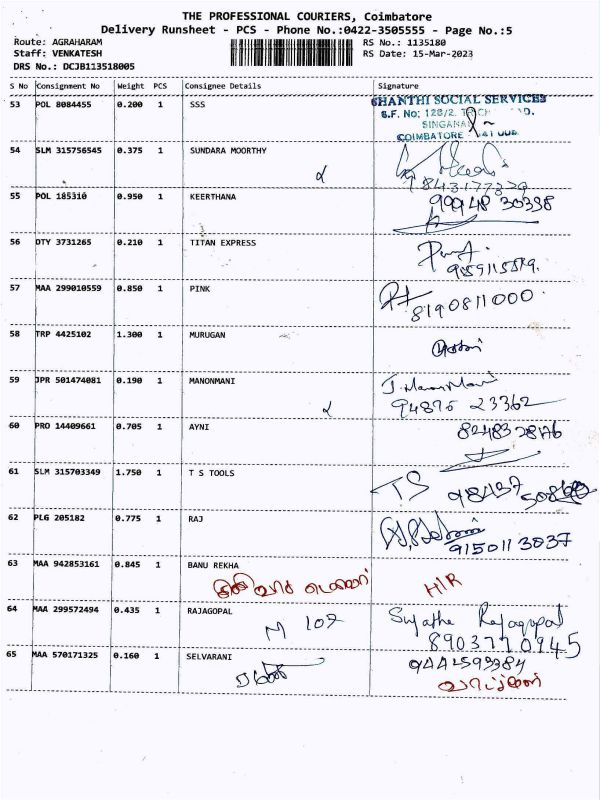 THE PROFESSIONAL COURIERS, Coimbatore
Delivery Runsheet - PCS - Phone No.:0422-3505555 - Page No.:5
Route: AGRAHARAM RS No.: 1135180
Staff: VENKATESH RS Date: 15-Mar-2023
DRS No.: DCJB113518005
S No Consignment No Weight PCS Consignee Details Signature
53 POL 8084455 0.200 1 SSS SHANTHI SOCIAL SERVICES
S.F. No: 128/2.
COIMBATORE
54 SLM 315756545 0.375 1 SUNDARA MOORTHY
55 POL 185310 0.950 1 KEERTHANA 99948 30338
56 OTY 3731265 0.210 1 TITAN EXPRESS
57 MAA 299010559 0.850 1 PINK
8190811000
58 TRP 4425102 1.300 1 MURUGAN
59 JPR 501474081 0.190 1 MANONMANI
94875 23362
60 PRO 14409661 0.705 1 AYNI
61 SLM 315703349 1.750 1 T S TOOLS T.S
62 PLG 205182 0.775 1 RAJ
9150113037
63 MAA 942853161 0.845 1 BANU REKHA
H/R
64 MAA 299572494 0.435 1 RAJAGOPAL
M 102 Sujatha Rajagopal
8903770945
65 MAA 570171325 0.160 1 SELVARANI